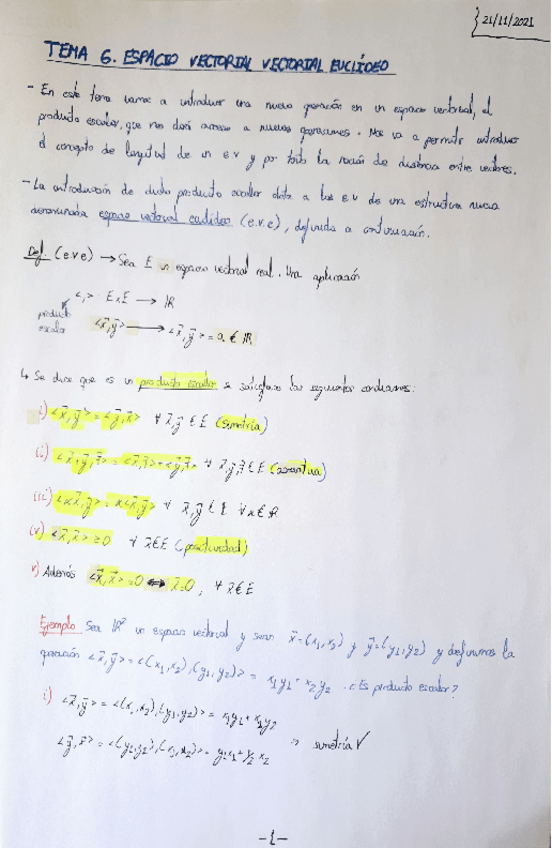 21/11/2021
TEMA 6. ESPACIO VECTORIAL VECTORIAL EUCLÍDEO
- En este tema vamos a introducir una nueva operación en un espacio vectorial, el
producto escalar, que nos dará acceso a nuevas operaciones. Nos va a permitir introducir
el concepto de longitud de un e.v y por tanto la noción de distancia entre vectores.
- La introducción de dicho producto escalar dota a los e.v de una estructura nueva
denominada espacio vectorial euclídeo (e.v.e), definida a continuación.
Def. (e.v.e) → Sea E un espacio vectorial real. Una aplicación
<,> E×E → IR
producto
escalar
<x⃗,y⃗> → <x⃗,y⃗> = a ∈ IR
↳ Se dice que es un producto escalar si satisface las siguientes condiciones:
i) <x⃗,y⃗> = <y⃗,x⃗> ∀ x⃗,y⃗ ∈ E (simetría)
ii) <x⃗+y⃗,z⃗> = <x⃗,z⃗> + <y⃗,z⃗> ∀ x⃗,y⃗,z⃗ ∈ E
iii) <αx⃗,y⃗> = α<x⃗,y⃗> ∀ x⃗,y⃗ ∈ E ∀α ∈ IR
iv) <x⃗,x⃗> ≥ 0 ∀ x⃗ ∈ E (positividad)
v) Además <x⃗,x⃗> = 0 ⟺ x⃗ = 0, ∀ x⃗ ∈ E
Ejemplo Sea IR² un espacio vectorial y sean x⃗ = (x₁,x₂) y y⃗ = (y₁,y₂) y definimos la
operación <x⃗,y⃗> = <(x₁,x₂),(y₁,y₂)> = x₁y₁ + x₂y₂. ¿Es producto escalar?
i) <x⃗,y⃗> = <(x₁,x₂),(y₁,y₂)> = x₁y₁ + x₂y₂
<y⃗,x⃗> = <(y₁,y₂),(x₁,x₂)> = y₁x₁ + y₂x₂ ⇒ simetría ✓
-1-